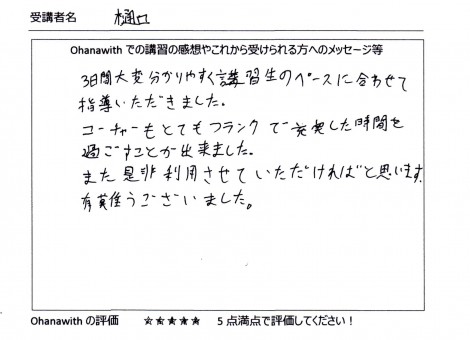 受講者名 樋口
Ohanawith での講習の感想やこれから受けられる方へのメッセージ等
3日間大変分かりやすく講習生のペースに合わせて
指導いただきました。
コーチャーもとてもフランクで充実した時間を
過ごすことが出来ました。
また是非利用させていただければと思います。
有難うございました。
Ohanawith の評価 ☆☆☆☆☆ 5 点満点で評価してください！